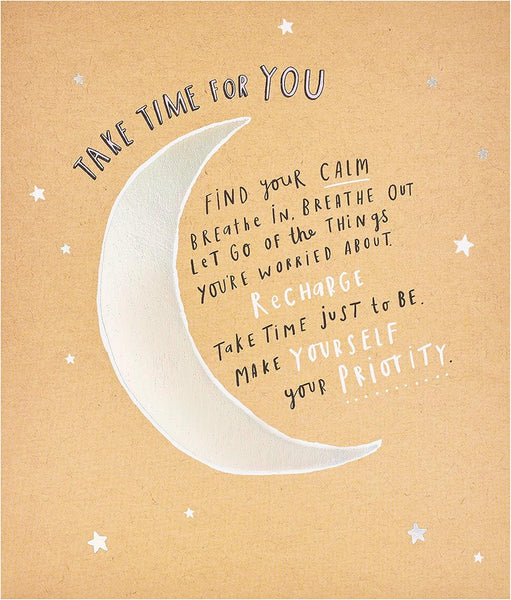 TAKE TIME FOR YOU
FIND your CALM
BREATHE IN. BREATHE OUT
LET GO OF the THINGS
YOU'RE WORRIED ABOUT.
ReCHARGE
TAKE TIME JUST to BE.
MAKE YOURSELF
your PRIORITY.